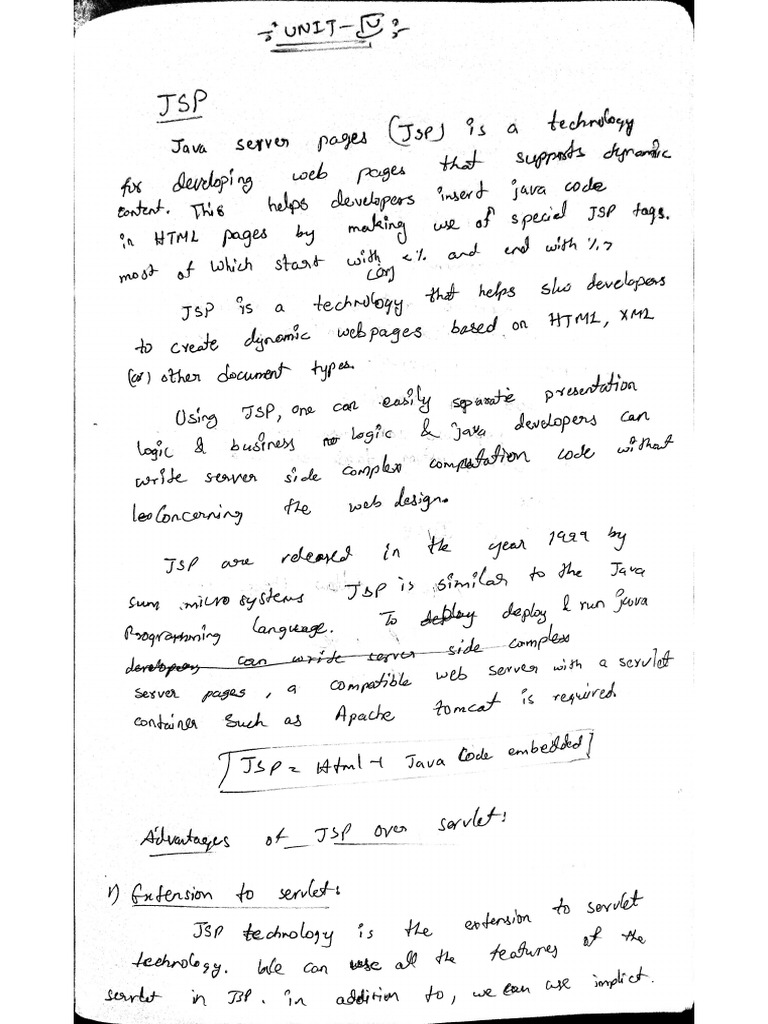 ÷ UNIT - V ÷
JSP
Java server pages (JSP) is a technology
for developing web pages that supports dynamic
content. This helps developers insert java code
in HTML pages by making use of special JSP tags.
most of which start with <% and end with %>
(or)
JSP is a technology that helps s/w developers
to create dynamic webpages based on HTML, XML
(or) other document types.
Using JSP, one can easily separate presentation
logic & business logic & java developers can
write server side complex computation code without
concerning the web design.
JSP are released in the year 1999 by
sum micro systems JSP is similar to the Java
Programming language. To deploy deploy & run java
developers can write server side complex
server pages, a compatible web server with a servlet
container such as Apache tomcat is required
JSP = Html + Java Code embedded
Advantages of JSP over servlet:
1) Extension to servlet:
JSP technology is the extension to servlet
technology. We can use all the features of the
servlet in JSP. in addition to, we can use implict.